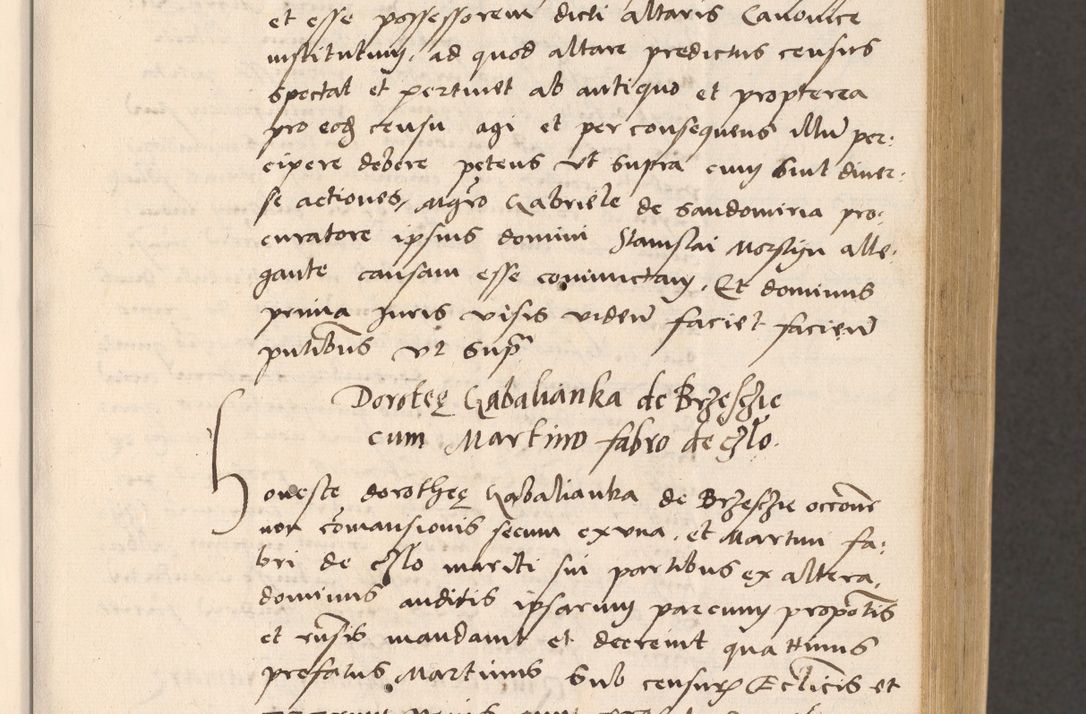 et esse possessorem dicti altaris Canonice
institutum, ad quod altare predictus census
spectat et pertinet ab antiquo et propterea
pro eodem censu agi et per consequens illum per:
cipere debere petens ut supra cum sint diver:
se actiones, Magistro Gabriele de Sandomiria pro:
curatore ipsius domini Stanislai Morstyn alle:
gante causam esse coniunctam, Et dominus
prima Juris visis videre faciet facien
putibus ut supra
Dorotheę Gabalianka de Brzeszie
cum Martino fabro de Czlo.
Honeste dorotheę Gabalianka de Brzeszie occone
non comansionis secum ex una, et Martini fa:
bri de Czlo mariti sui partibus ex altera,
dominus auditis ipsarum parcium propotis
et rnsis mandavit et decrevit quattinus
prefatus Martinus sub censuris Ecclicis et